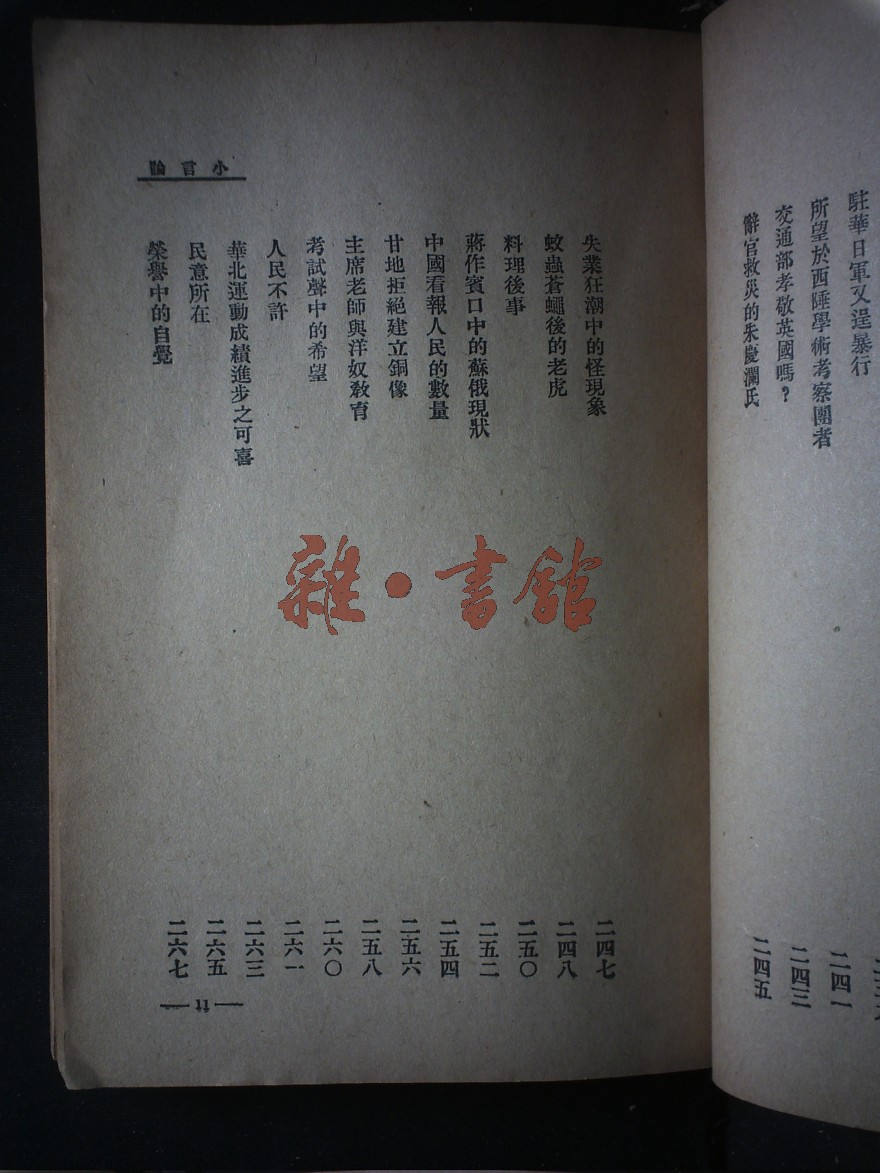 駐華日軍又逞暴行
所望於西陲學術考察團者 二四一
交通部孝敬英國嗎？ 二四三
辭官救災的朱慶瀾氏 二四五
小言論
失業狂潮中的怪現象 二四七
蚊蟲蒼蠅後的老虎 二四八
料理後事 二五〇
蔣作賓口中的蘇俄現狀 二五二
中國看報人民的數量 二五四
甘地拒絕建立銅像 二五六
主席老師與洋奴教育 二五八
考試聲中的希望 二六〇
人民不許 二六一
華北運動成績進步之可喜 二六三
民意所在 二六五
榮譽中的自覺 二六七
— 11 —
雜·書館